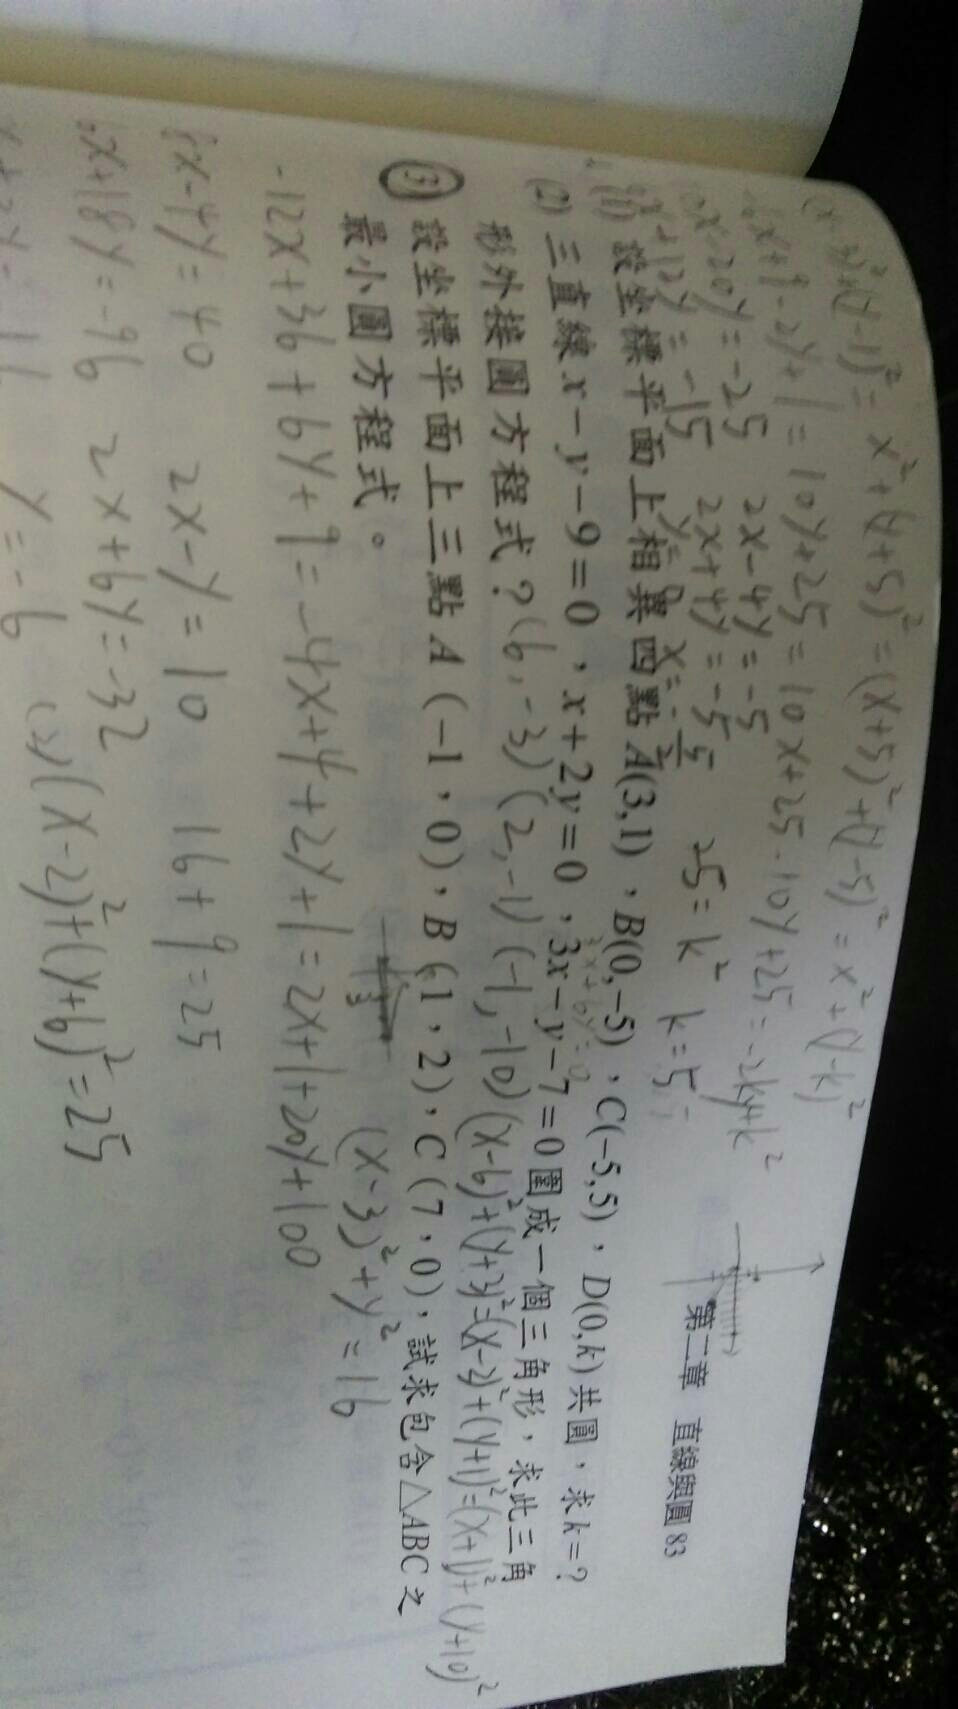 第二章 直線與圓 83
(x-3)²+(y-1)²=x²+(y+5)²=(x+5)²+(y-5)²=x²+(y-k)²
-6x+9-2y+1=10y+25=10x+25-10y+25=-2ky+k²
x-20y=-25 2x-4y=-5 25=k² k=5
+12y=-15 2x+4y=-5
y=0 x=-5/2
(1) 設坐標平面上相異四點 A(3,1)、B(0,-5)、C(-5,5)、D(0,k) 共圓,求 k=?
3x+6y=0
(2) 三直線 x-y-9=0,x+2y=0,3x-y-7=0 圍成一個三角形,求此三角
形外接圓方程式?(6,-3)(2,-1)(-1,-10)(x-6)²+(y+3)²=(x-2)²+(y+1)²=(x+1)²+(y+10)²
3 設坐標平面上三點 A(-1,0),B(1,2),C(7,0),試求包含△ABC之
最小圓方程式。
3
(x-3)²+y²=16
-12x+36+6y+9=-4x+4+2y+1=2x+1+20y+100
8x-4y=40 2x-y=10 16+9=25
6x+18y=-96 2x+6y=-32
y=-6 (x-2)²+(y+6)²=25